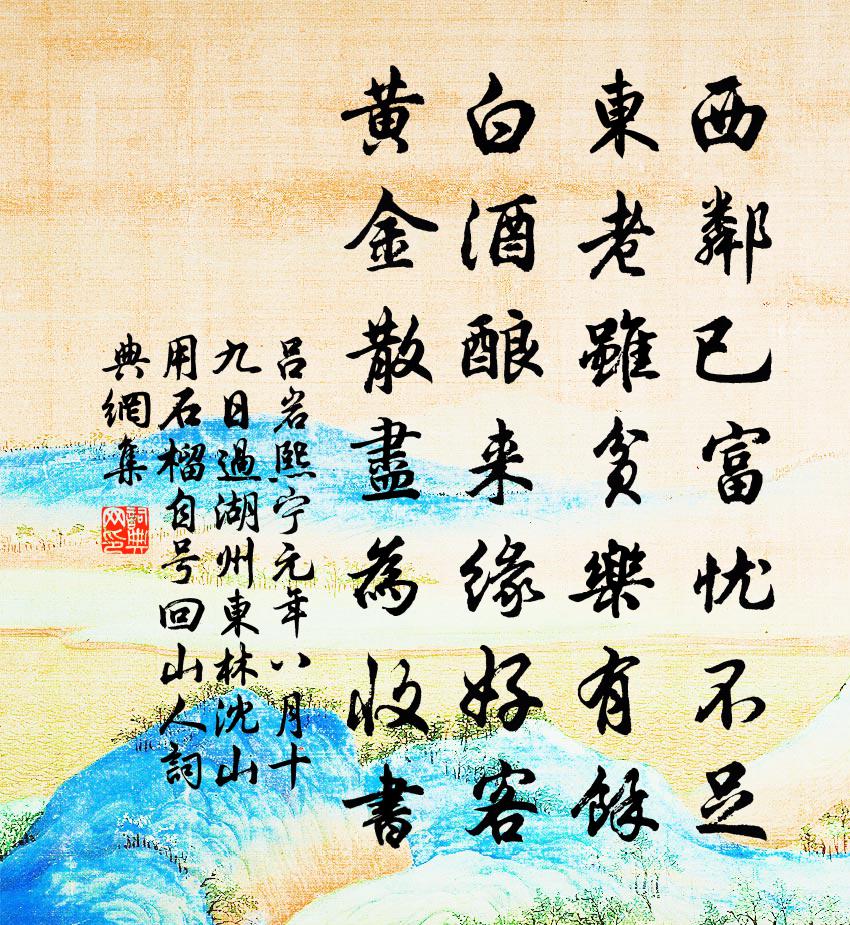 西鄰已富忧不足
東老雖貧樂有餘
白酒酿来缘好客
黃金散盡為收書
吕岩熙宁元年八月十
九日過湖州東林沈山
用石榴自号回山人詞
典網集
詞典网印